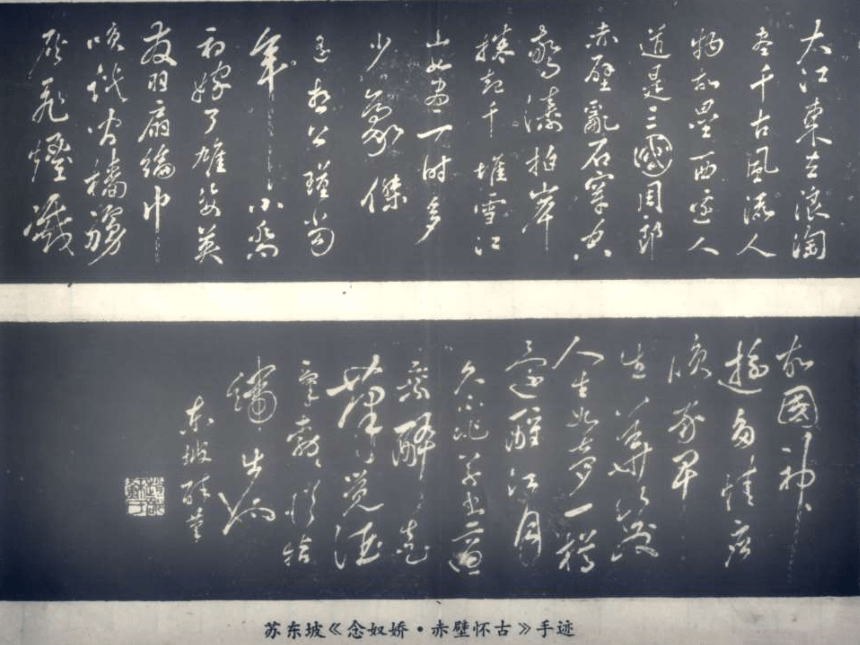 大江東去浪淘
盡千古風流人
物故壘西邊人
道是三國周郎
赤壁亂石穿空
驚濤拍岸
捲起千堆雪江
山如畫一時多
少豪傑
遙想公瑾當
年小喬
初嫁了雄姿英
發羽扇綸巾
笑談間檣櫓
灰飛煙滅
故國神
遊多情應
笑我早
生華髮
人生如夢一樽
還酹江月
久不作草書適
乘醉走
筆覺酒
東坡醉筆
苏东坡《念奴娇·赤壁怀古》手迹